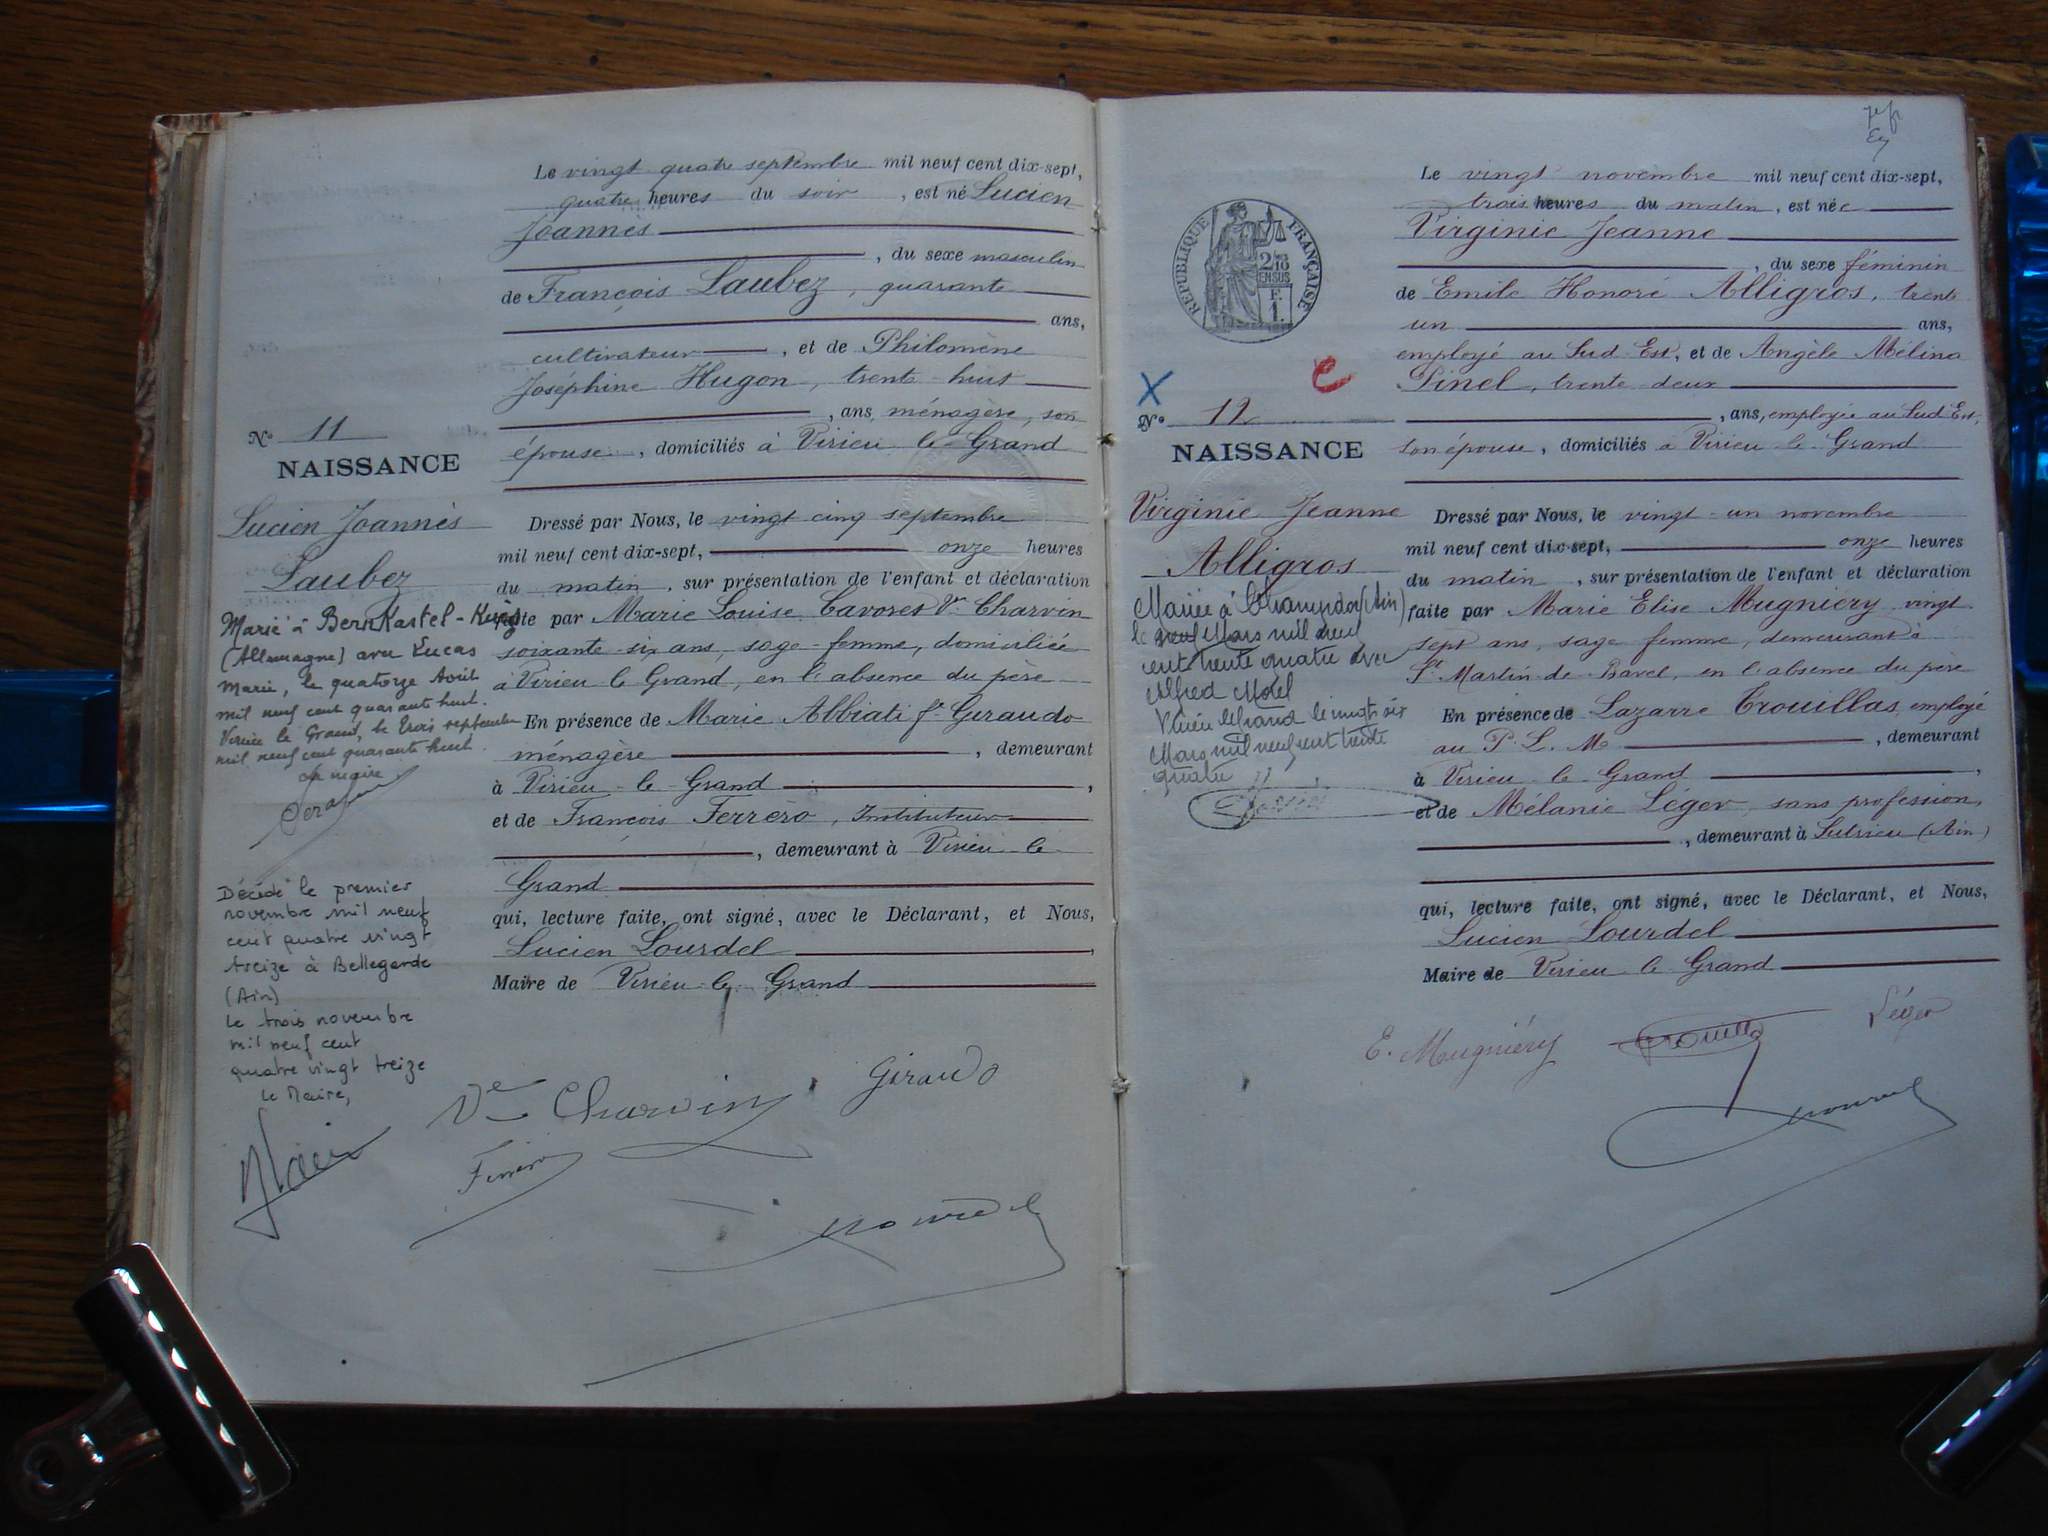 Le vingt quatre septembre mil neuf cent dix-sept,
quatre heures du soir, est né Lucien
Joannès
, du sexe masculin
de François Laubez, quarante
ans,
cultivateur, et de Philomène
Joséphine Hugon, trente-huit
, ans, ménagère, son
épouse, domiciliés à Virieu-le-Grand
No 11
NAISSANCE
Lucien Joannès
Laubez
Dressé par Nous, le vingt cinq septembre
mil neuf cent dix-sept, onze heures
du matin, sur présentation de l'enfant et déclaration
faite par Marie Louise Cavores Ve Charvin
soixante-six ans, sage-femme, domiciliée
à Virieu le Grand, en l'absence du père
En présence de Marie Abbiati fe Geraudo
ménagère, demeurant
à Virieu-le-Grand,
et de François Ferrero, Instituteur
, demeurant à Virieu-le-
Grand
qui, lecture faite, ont signé, avec le Déclarant, et Nous,
Lucien Lourdel,
Maire de Virieu-le-Grand
Marié à BernKastel-Kues
(Allemagne) avec Lucas
Marie, le quatorze Août
mil neuf cent quarante huit.
Virieu le Grand, le trois septembre
mil neuf cent quarante huit.
Le maire
Décédé le premier
novembre mil neuf
cent quatre vingt
treize à Bellegarde
(Ain)
le trois novembre
mil neuf cent
quatre vingt treize
Le Maire,
Ve Charvin
Giraudo
Ferrero
Lourdel
7e f
Le vingt novembre mil neuf cent dix-sept,
trois heures du matin, est née
Virginie Jeanne
, du sexe féminin
de Emile Honoré Alligros, trente
un ans,
employé au Sud-Est, et de Angèle Mélina
Pinel, trente-deux
, ans, employée au Sud Est,
son épouse, domiciliés à Virieu-le-Grand
RÉPUBLIQUE FRANÇAISE
2/10 EN SUS
F. 1.
X
e
No 12
NAISSANCE
Virginie Jeanne
Alligros
Dressé par Nous, le vingt-un novembre
mil neuf cent dix-sept, onze heures
du matin, sur présentation de l'enfant et déclaration
faite par Marie Elise Mugniery vingt
sept ans, sage-femme, demeurant à
St Martin-de-Bavel, en l'absence du père
En présence de Lazarre Trouillas, employé
au P. L. M., demeurant
à Virieu-le-Grand,
et de Mélanie Léger, sans profession,
, demeurant à Sutrieu (Ain)
qui, lecture faite, ont signé, avec le Déclarant, et Nous,
Lucien Lourdel
Maire de Virieu-le-Grand
Mariée à Champdor (Ain)
le neuf Mars mil neuf
cent trente quatre avec
Alfred Motel
Virieu le Grand le vingt six
Mars mil neuf cent trente
quatre
E. Mugniéry
Trouilla
Léger
Lourdel